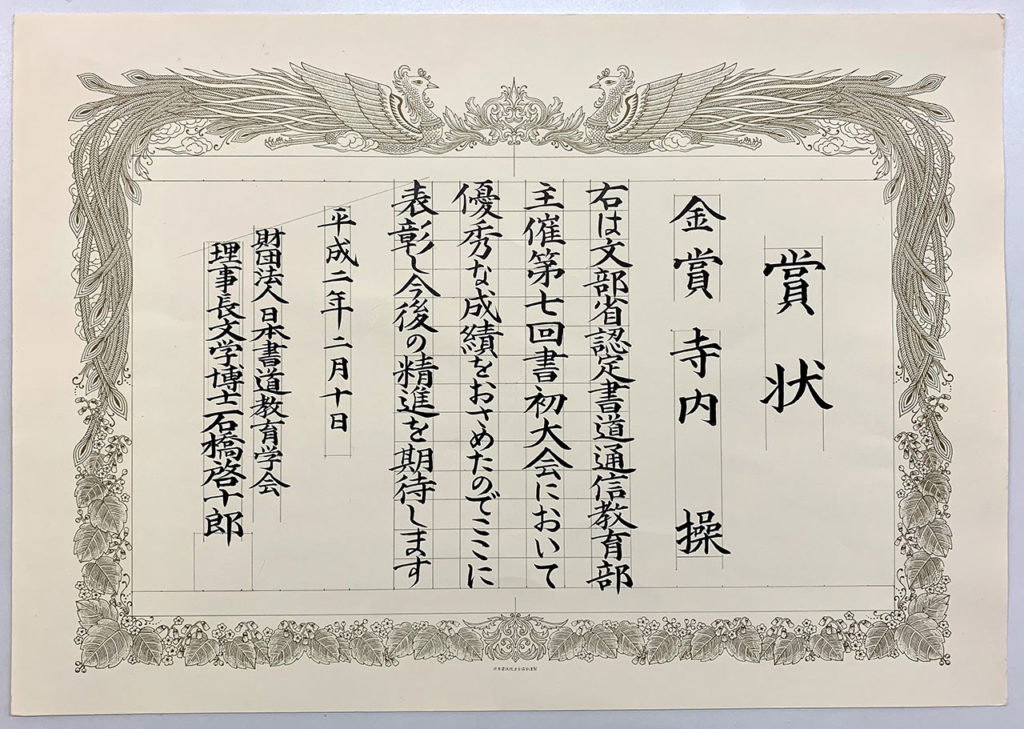 賞状
金賞 寺内 操
右は文部省認定書道通信教育部
主催第七回書初大会において
優秀な成績をおさめたのでここに
表彰し今後の精進を期待します
平成二年二月十日
財団法人日本書道教育学会
理事長文学博士石橋啓十郎